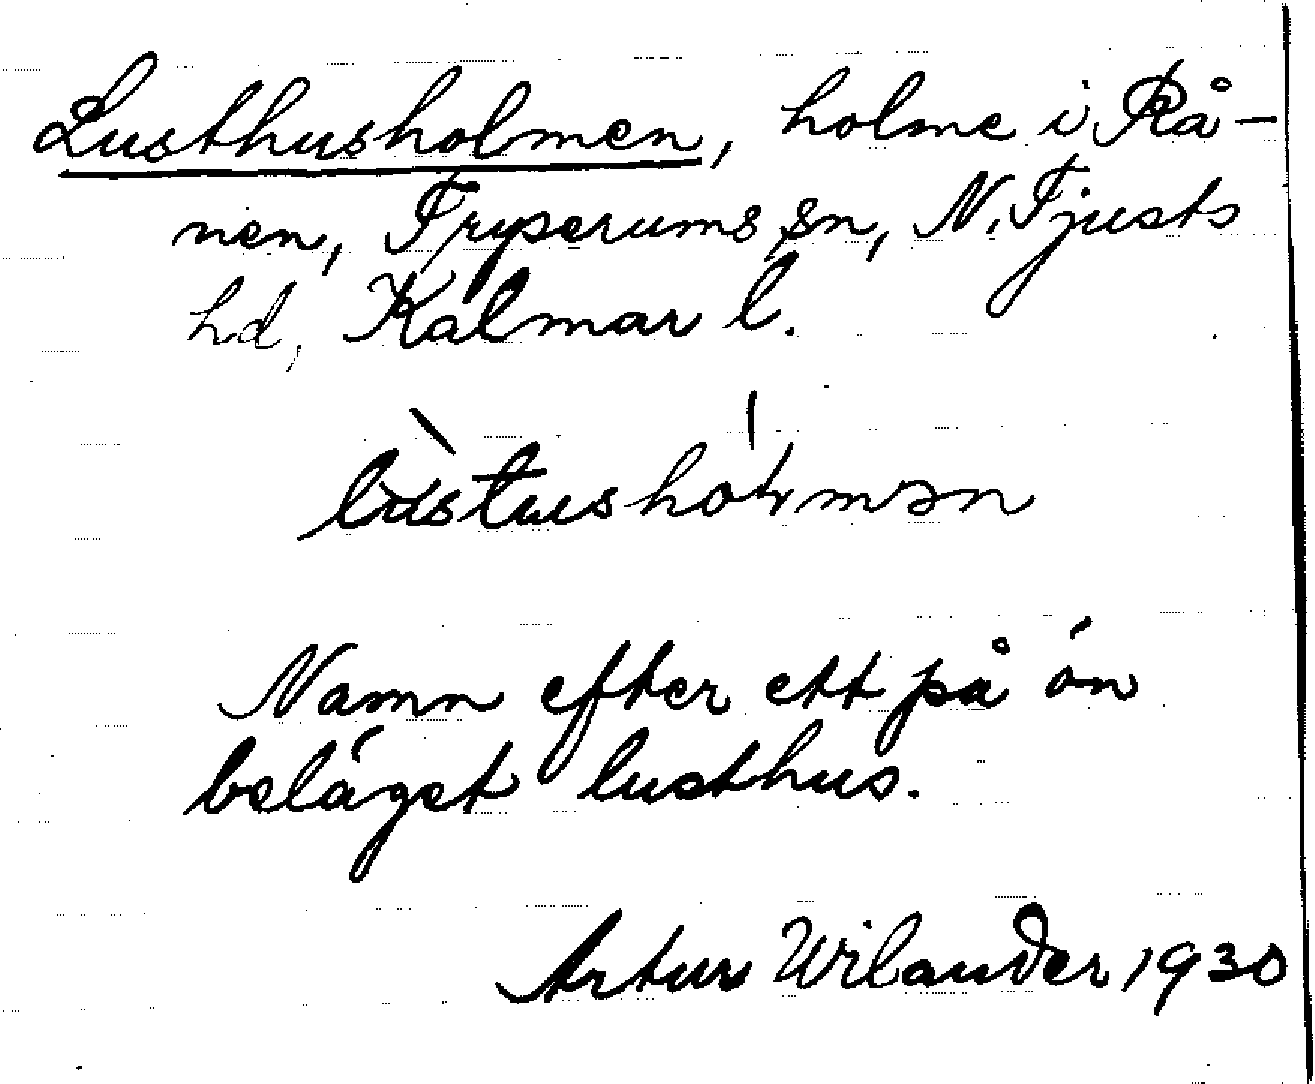 Lusthusholmen, holme i Rå-
nen, Tryserums sn, N. Tjusts
hd, Kalmar l.
lùstushól̵mən
Namn efter ett på ön
beläget lusthus.
Artur Wilander 1930